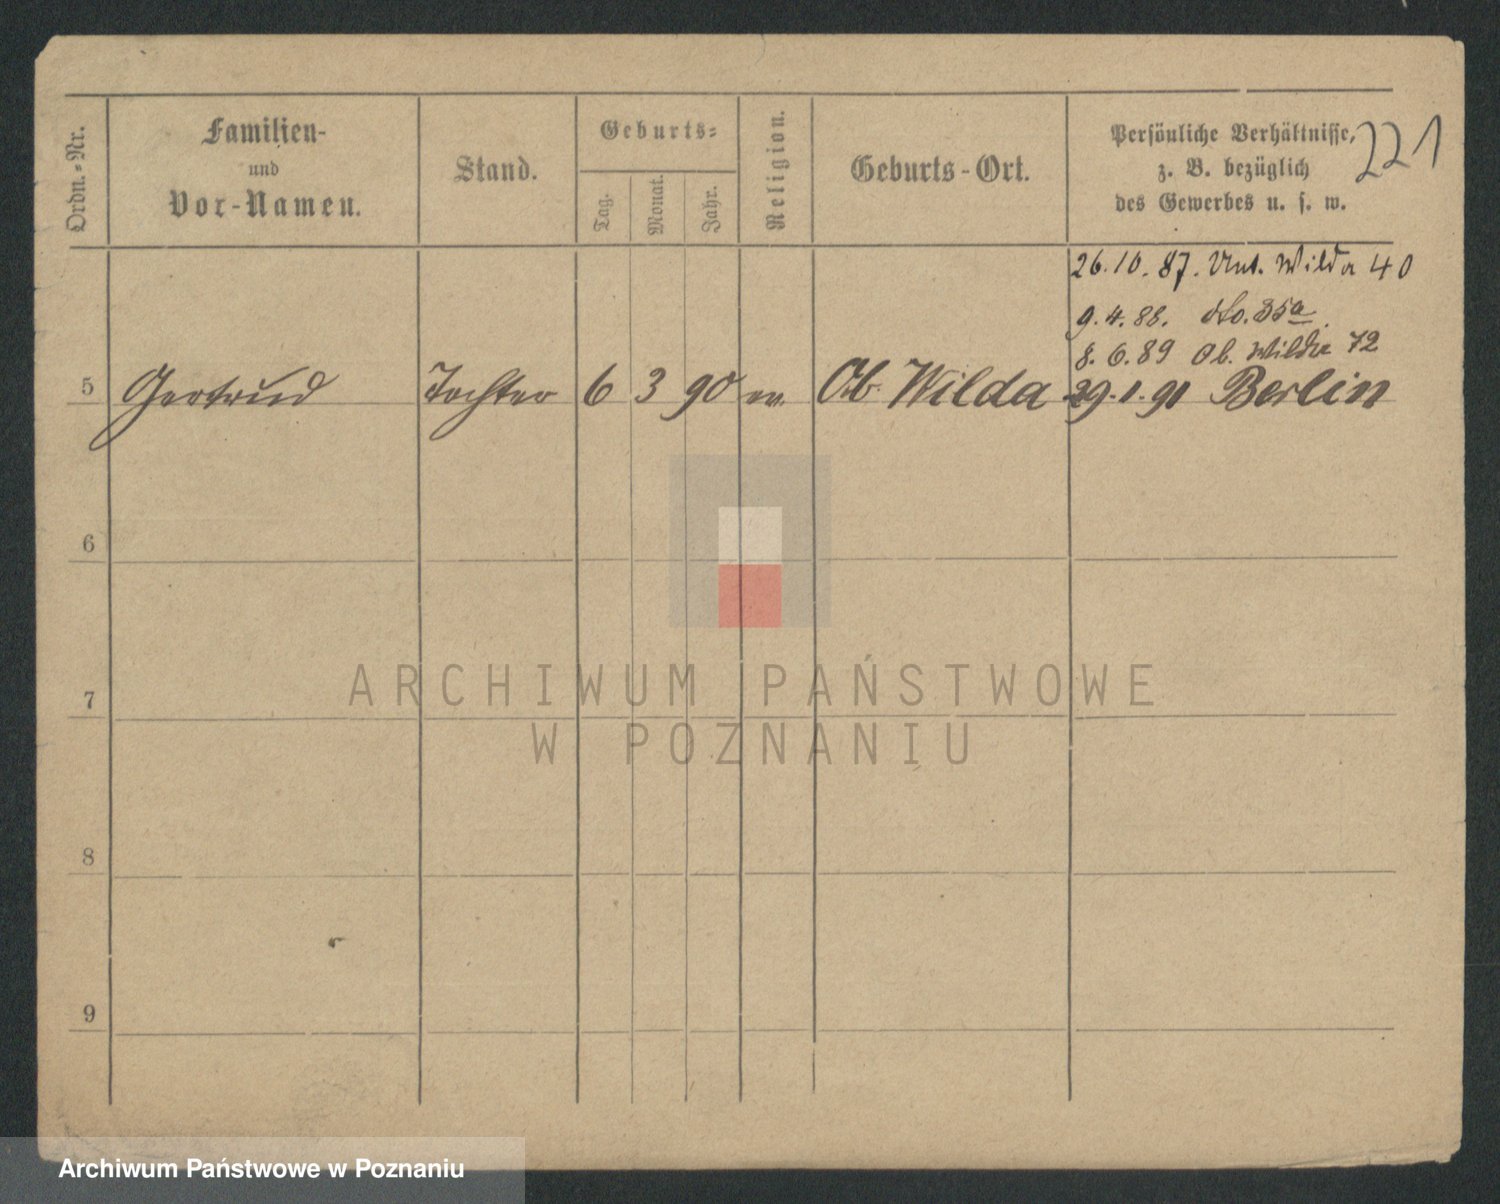 221
Ordn.-Nr.
Familien-
und
Vor-Namen.
Stand.
Geburts-
Tag.
Monat.
Jahr.
Religion.
Geburts-Ort.
Persönliche Verhältnisse,
z. B. bezüglich
des Gewerbes u. s. w.
26.10.87. Unt. Wilda 40
9.4.88. dto. 35a
8.6.89 Ob. Wilda 72
5 Gertrud Tochter 6 3 90 ev. Ob. Wilda 29.1.91 Berlin
6
7
8
9
ARCHIWUM PAŃSTWOWE
W POZNANIU
Archiwum Państwowe w Poznaniu